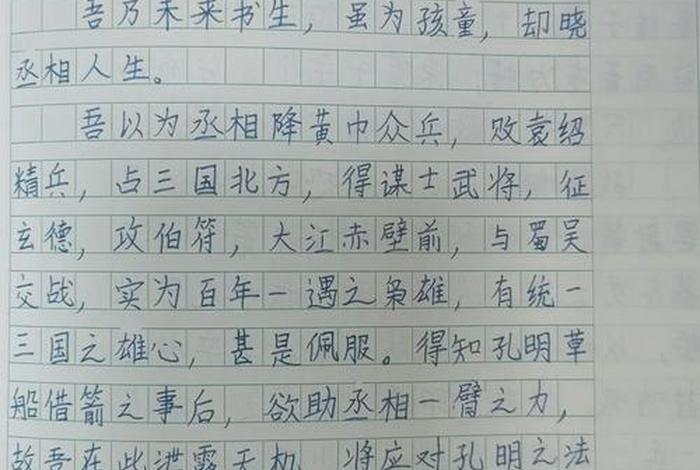 吾乃未来书生，虽为孩童，却晓
丞相人生。
吾以为丞相降黄巾众兵，败袁绍
精兵，占三国北方，得谋士武将，征
玄德，攻伯符，大江赤壁前，与蜀吴
交战，实为百年一遇之枭雄，有统一
三国之雄心，甚是佩服。得知孔明草
船借箭之事后，欲助丞相一臂之力，
故吾在此泄露天机，将应对孔明之法